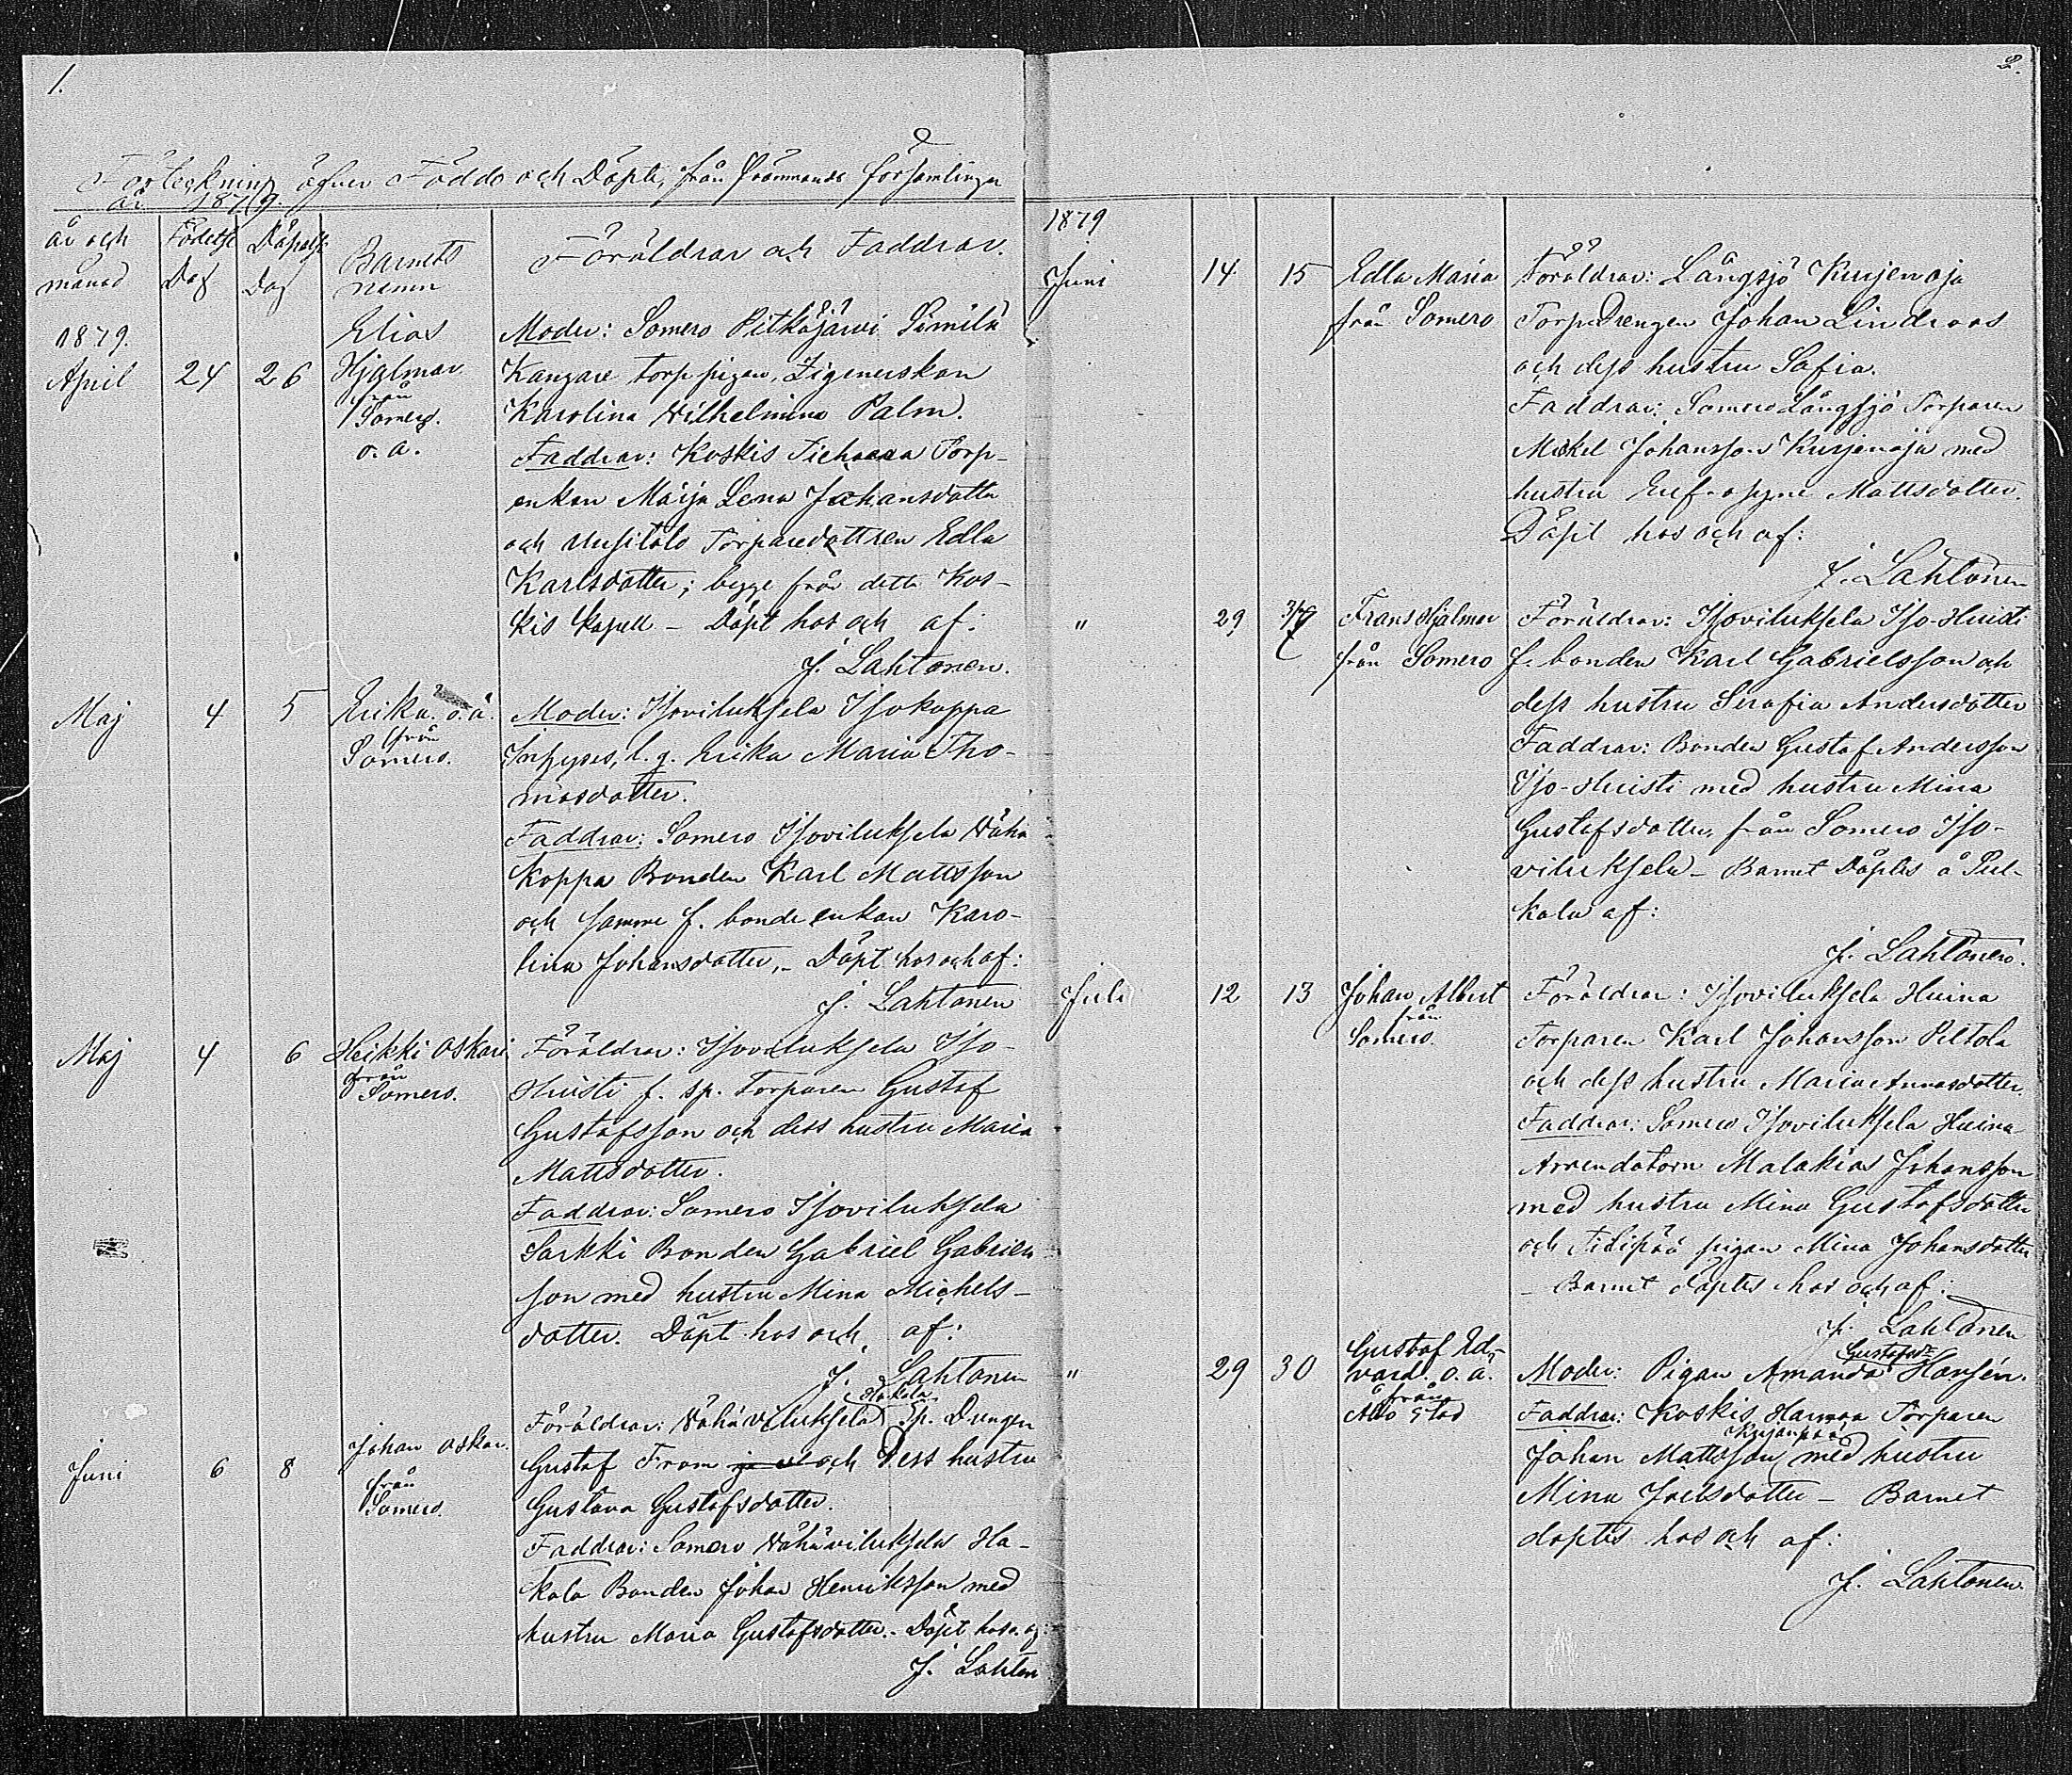 1.
Förteckning öfver Födde och Döpte, från främmande församlingar
år 1879.
År och månad
Födelse Dag
Döpelse Dag
Barnets namn
Föräldrar och Faddrar.
1879.
April 24 26
Elias
Hjalmar
från
Somero.
o. ä.
Moder: Somero Pitkäjärvi Simila
Kangare torppigan, Zigenerskan
Karolina Wilhelmina Palm.
Faddrar: Koskis Tiehaara Torp-
enkan Maija Lena Johansdotter
och Uusitalo Torparedottren Edla
Karlsdotter; begge från detta Kos-
kis kapell – Döpt hos och af:
J. Lahtonen.
Maj 4 5
Erika. o. ä.
från
Somero.
Moder: Isoviluksela Isokoppa
Inhyses, l. g. Erika Maria Tho-
masdotter.
Faddrar: Somero Isoviluksela Wähä
Koppa Bonden Karl Mattsson
och samme f. bondeenkan Karo-
lina Johansdotter, – Döpt hos och af:
J. Lahtonen
Maj 4 6
Heikki Oskari
från
Somero.
Föräldrar: Isoviluksela Iso-
Huisti f. sp. torparen Gustaf
Gustafsson och dess hustru Maria
Mattsdotter.
Faddrar: Somero Isoviluksela
Sarkki Bonden Gabriel Gabriels
son med hustru Mina Michels-
dotter. Döpt hos och af:
J. Lahtonen
Juni 6 8
Johan Oskar.
från
Somero.
Hakala
Föräldrar: Wähäviluksela Sp. Drengen
Gustaf From och Dess hustru
Gustava Gustafsdotter.
Faddrar: Somero Wähäviluksela Ha-
kala Bonden Johan Henriksson med
hustru Maria Gustafsdotter. – Döpt hos o. af:
J. Lahton
2.
1879
Juni 14 15
Edla Maria
från Somero
Föräldrar: Långsjö Kurjenoja
Torpdrengen Johan Lindroos
och dess hustru Sofia.
Faddrar: Somero Långsjö Torparen
Mickel Johansson Kurjenoja med
hustru Eufrosyne Mattsdotter.
Döpt hos och af:
J. Lahtonen
" 29 3/7
Frans Hjalmar
från Somero
Föräldrar: Isoviluksela Iso-Huisti
f. bonden Karl Gabrielsson och
dess hustru Serafia Andersdotter
Faddrar: Bonden Gustaf Andersson
Iso-Huisti med hustru Mina
Gustafsdotter, från Somero Iso-
viluksela – Barnet Döptes å
kala af:
J. Lahtonen.
Juli 12 13
Johan Albert
från
Somero.
Föräldrar: Isoviluksela Heina
Torparen Karl Johansson Peltola
och dess hustru Maria
Faddrar: Somero Isoviluksela Heina
Arrendatorn Malakias Johansson
med hustru Mina Gustafsdotter
och pigan Mina Johansdotter
– Barnet döptes hos och af:
J. Lahtonen
" 29 30
Gustaf Ed-
vard. o. ä.
från
Åbo Stad
Gustafsdr
Moder: Pigan Amanda Hansén.
Faddrar: Koskis Harmaa Torparen
Johan Mattsson med hustru
Mina Joelsdotter – Barnet
döptes hos och af:
J. Lahtonen